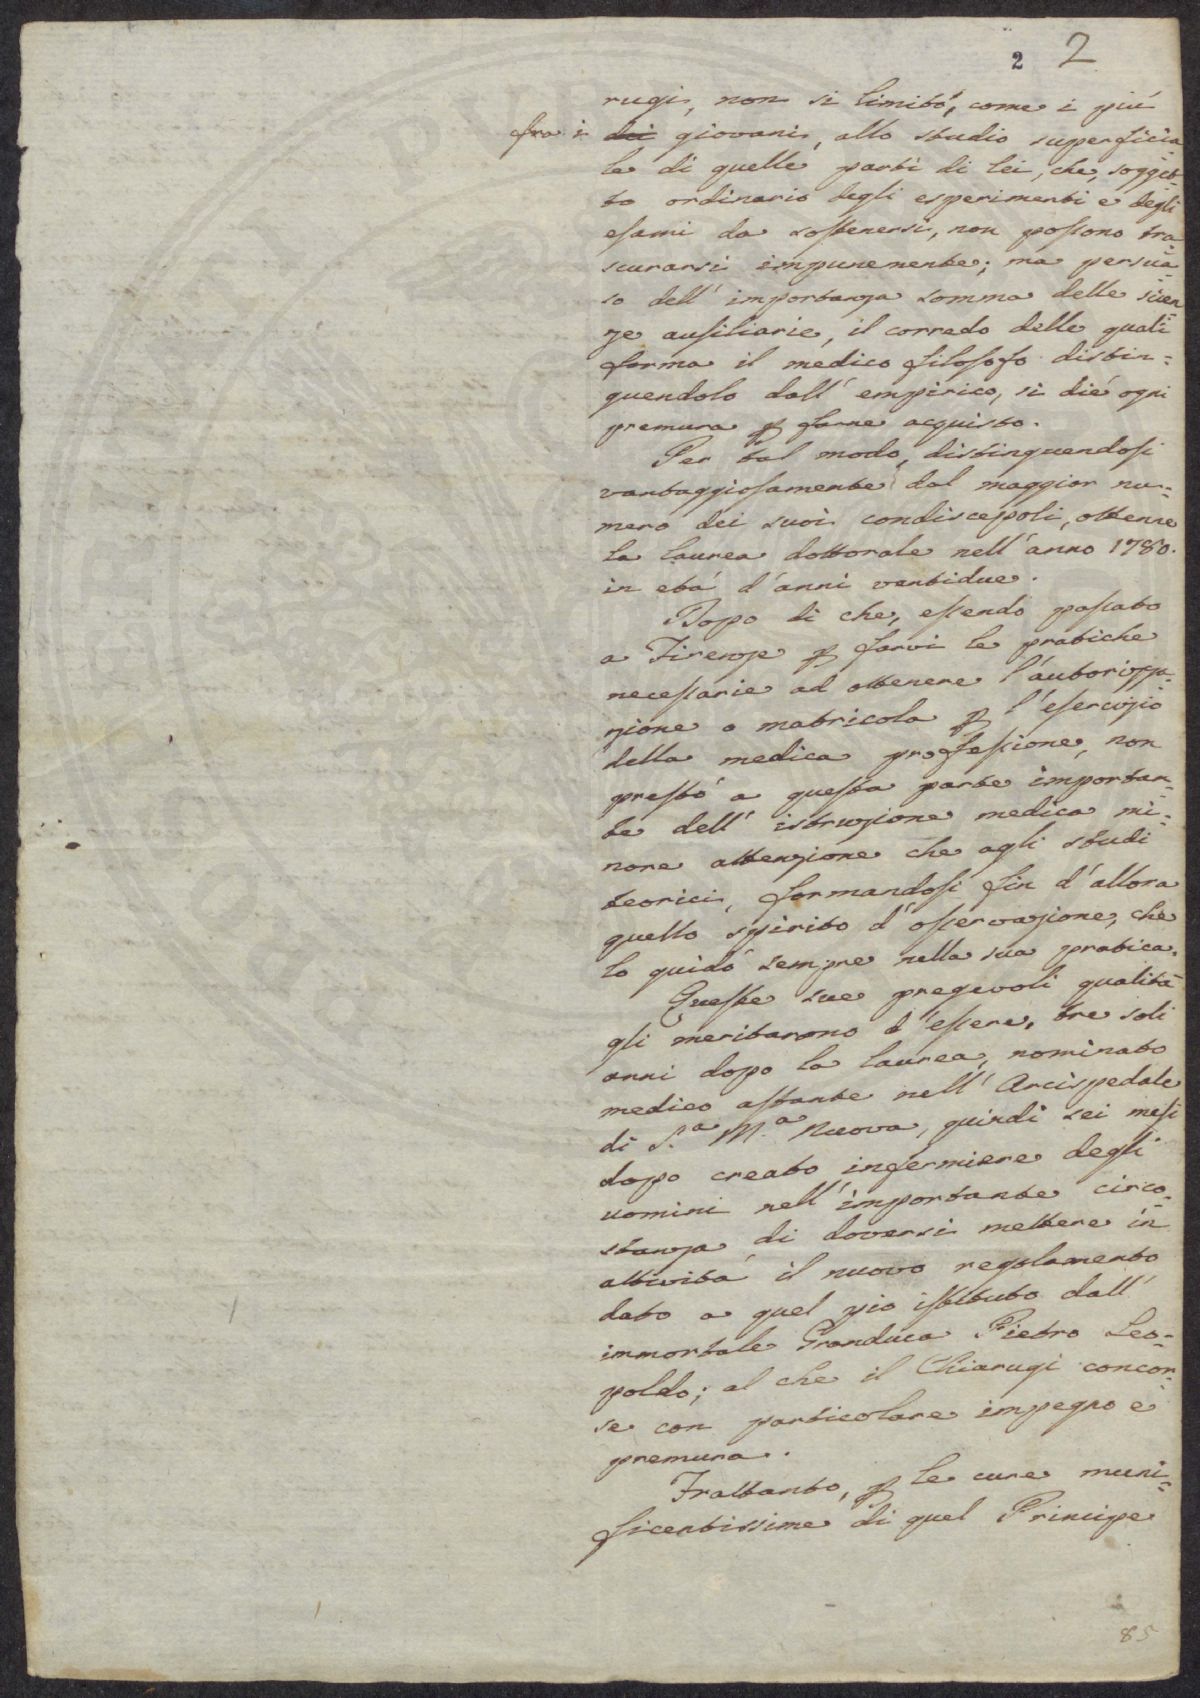 2 2
rugi, non si limitò, come i più
fra i dei giovani, allo studio superficia
le di quelle parti di lei, che, sogget=
to ordinario degli esperimenti e degli
esami da sostenersi, non possono tra=
scurarsi impunemente; ma persua=
so dell'importanza somma delle scien=
ze ausiliarie, il corredo delle quali
forma il medico filosofo distin=
guendolo dall'empirico, si diè ogni
premura p farne acquisto.
Per tal modo, distinguendosi
vantaggiosamente dal maggior nu=
mero dei suoi condiscepoli, ottenne
la laurea dottorale nell'anno 1780.
in età d'anni ventidue.
Dopo di che, essendo passato
a Firenze p farvi le pratiche
necessarie ad ottenere l'autorizza=
zione o matricola p l'esercizio
della medica professione, non
prestò a questa parte importan=
te dell'istruzione medica mi=
nore attenzione che agli studi
teorici, formandosi fin d'allora
quello spirito d'osservazione, che
lo guidò sempre nella sua pratica.
Queste sue pregevoli qualità
gli meritarono d'essere, tre soli
anni dopo la laurea, nominato
medico astante nell'Arcispedale
di S.a M.a Nuova, quindi sei mesi
dopo creato infermiere degli
uomini nell'importante circo=
stanza di doversi mettere in
attività il nuovo regolamento
dato a quel pio istituto dall'
immortale Granduca Pietro Leo=
poldo; al che il Chiarugi concor=
se con particolare impegno e
premura.
Frattanto, p le cure muni=
ficentissime di quel Principe
85